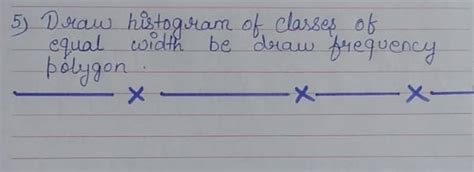 5) Draw histogram of classes of
equal width be draw frequency
polygon .